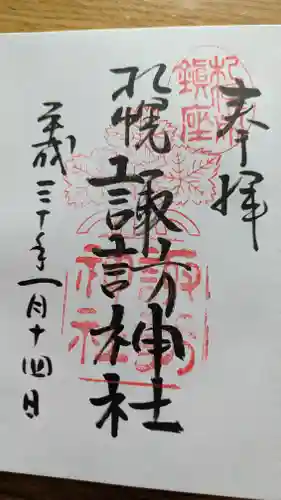 奉拝
札幌鎮座
札幌
諏訪神社
諏訪神社
平成三十年一月十四日